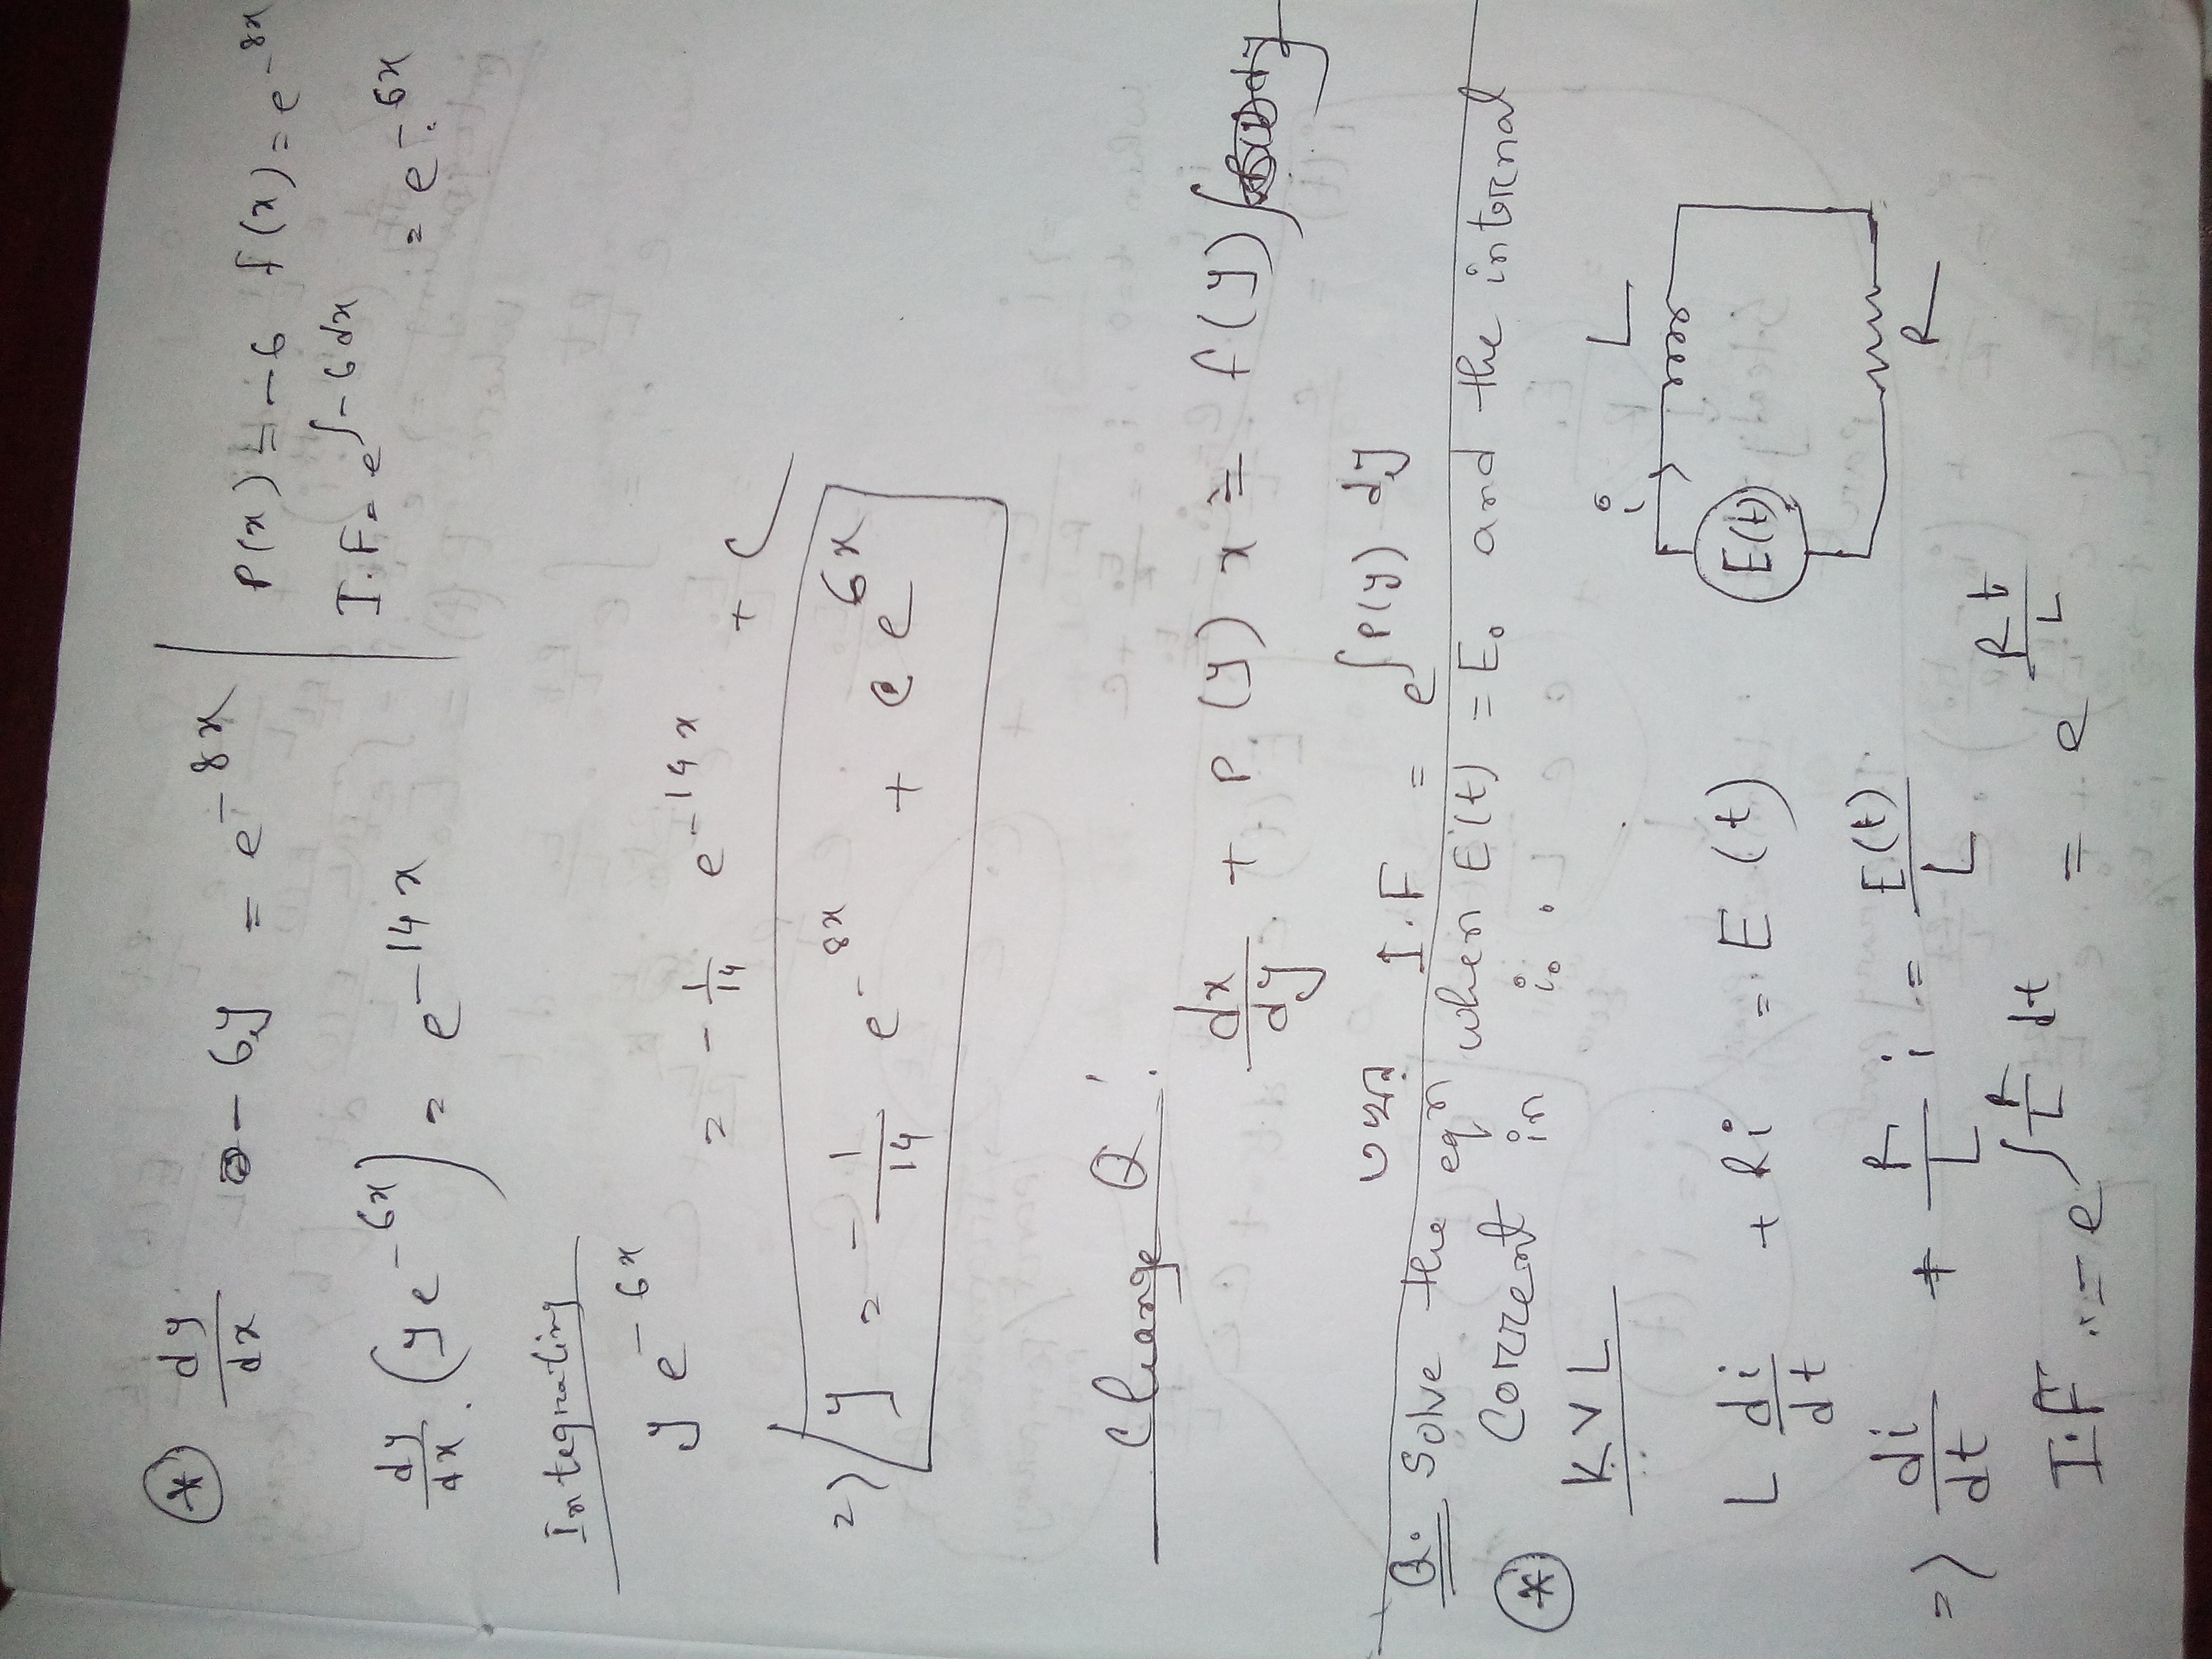 * dy/dx - 6y = e^-8x | P(x) = -6 f(x) = e^-8x
I.F = e^∫-6dx = e^-6x
dy/dx (y e^-6x) = e^-14x
Integrating
y e^-6x = - 1/14 e^-14x + C
=> y = - 1/14 e^-8x + c e^6x
Change Q:
dx/dy + P(y) x = f(y)
তখন I.F = e^∫P(y) dy
Q. Solve the eqn when E(t) = E₀ and the internal
* Corrent in i₀.
KVL
i L
E(t)
R
L di/dt + Ri = E(t)
=> di/dt + R/L i = E(t)/L
I.F = e^∫R/L dt = e^R/L t